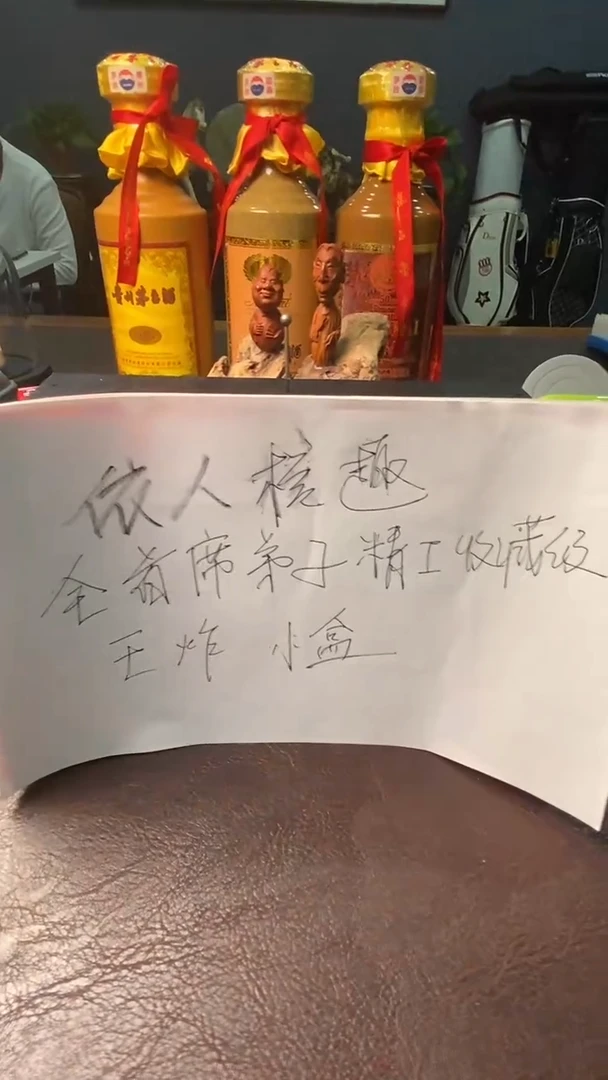 贵州茅台酒
酒
Dior
依人核趣
全首席弟子精工收藏级
王炸 小盒